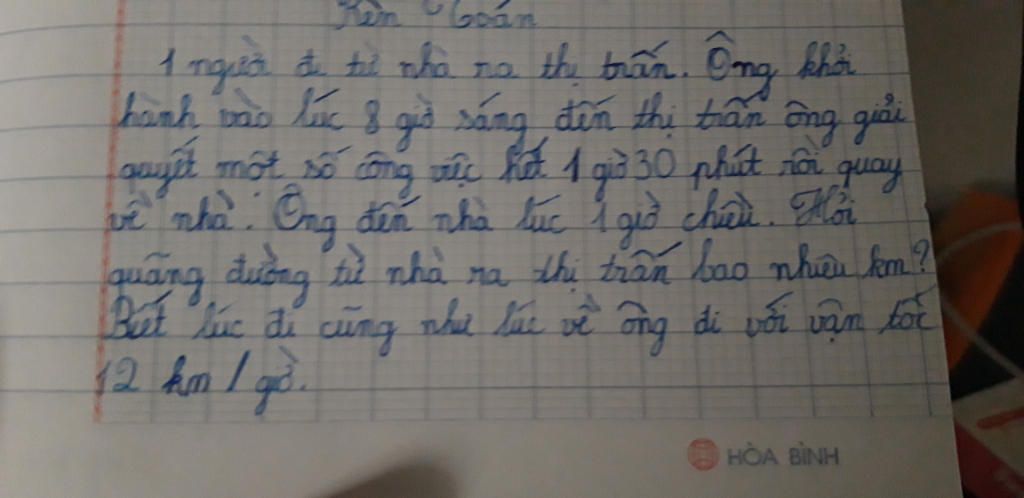 Rèn toán
1 người đi từ nhà ra thị trấn. Ông khởi
hành vào lúc 8 giờ sáng đến thị trấn ông giải
quyết một số công việc hết 1 giờ 30 phút rồi quay
về nhà. Ông đến nhà lúc 1 giờ chiều. Hỏi
quãng đường từ nhà ra thị trấn bao nhiêu km?
Biết lúc đi cũng như lúc về ông đi với vận tốc
12 km / giờ.
HÒA BÌNH